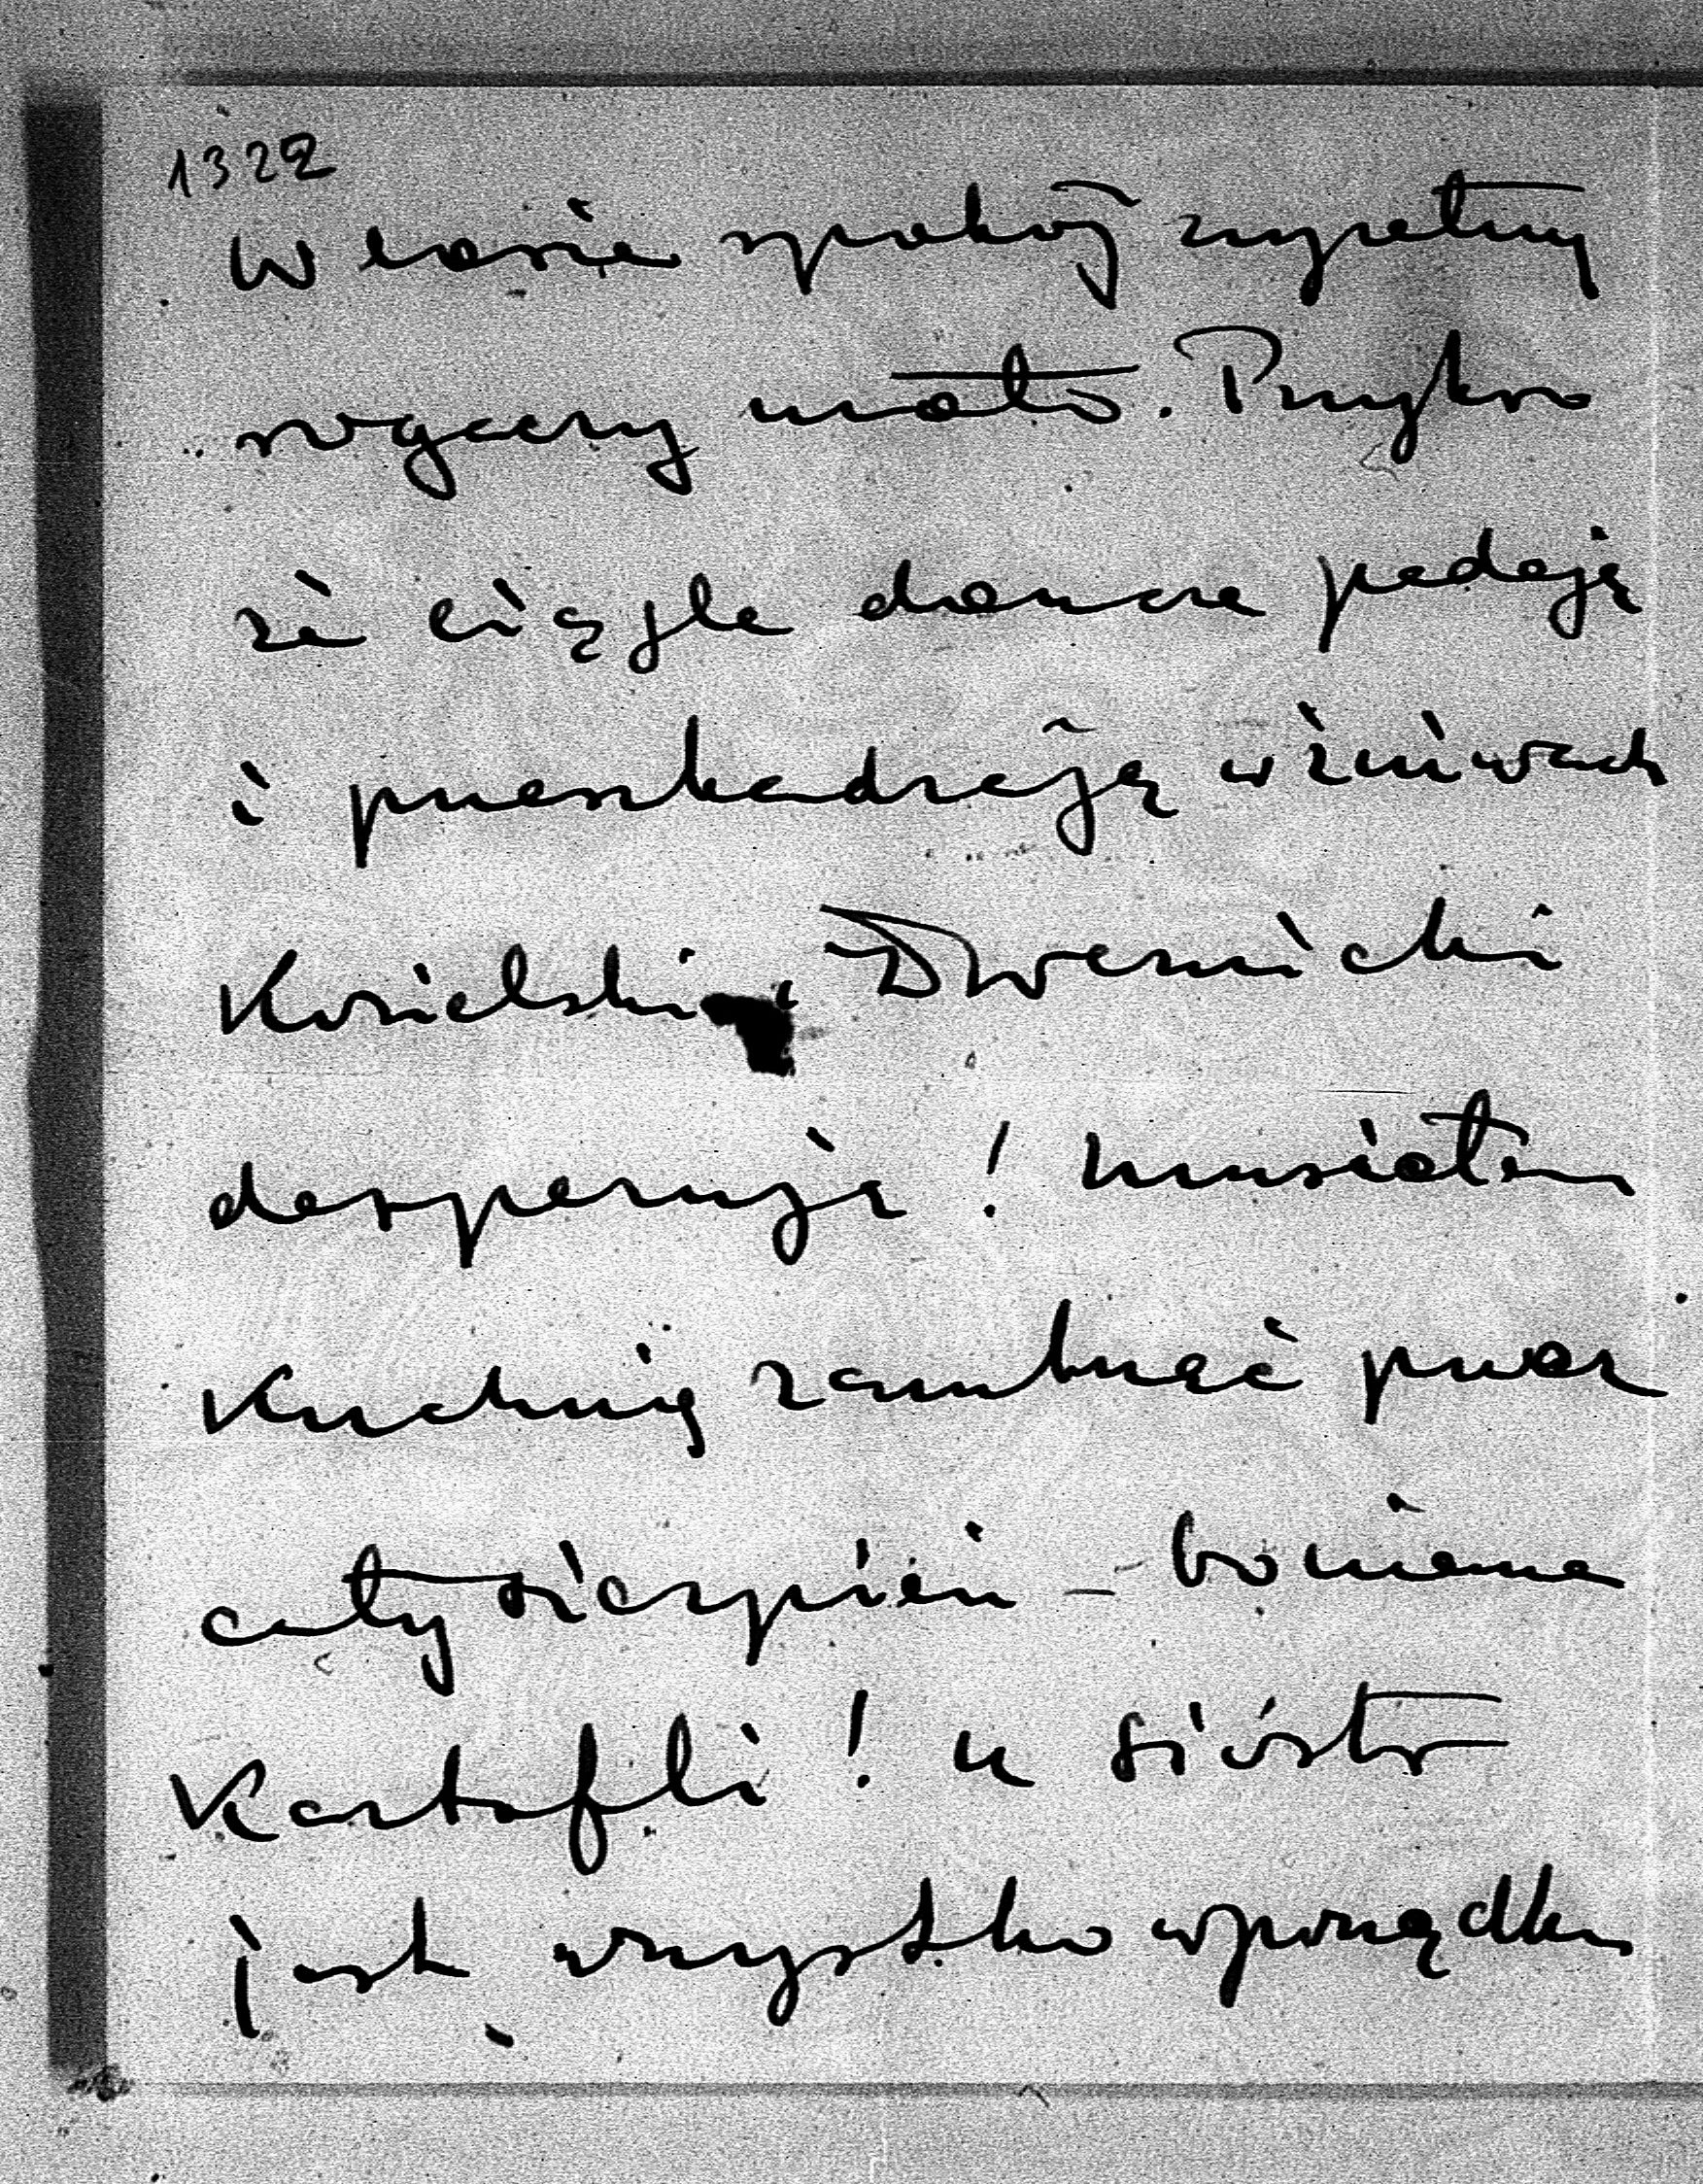 1322
W lesie spokój zupełny
rogaczy mało. Przykro
że ciągle deszcze padają
i przeszkadzają w żniwach
Kozielski i Dwernicki
desperują! Musiałem
Kuchnię zamknąć przez
cały sierpień – bo niema
Kartofli! u sióstr
jest wszystko w porządku